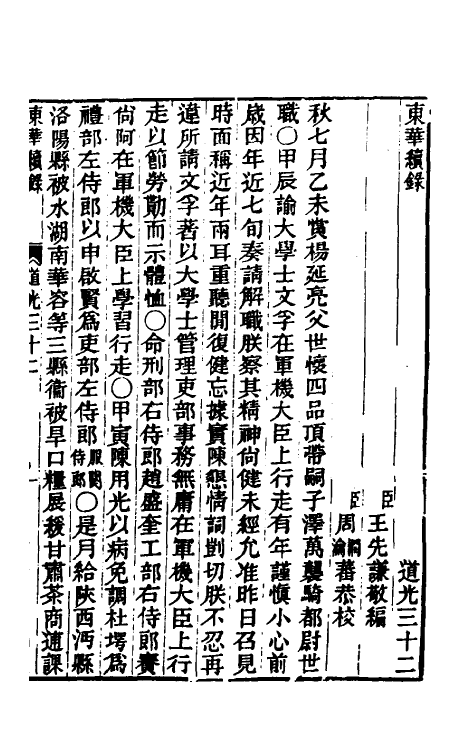 東華續錄
道光三十二
臣王先謙敬編
臣周瀹蕃恭校
秋七月乙未賞楊延亮父世懷四品頂帶嗣子澤萬襲騎都尉世
職〇甲辰諭大學士文孚在軍機大臣上行走有年謹慎小心前
歲因年近七旬奏請解職朕察其精神尚健未經允准昨日召見
時面稱近年兩耳重聽聞復健忘據實陳懇情詞剴切朕不忍再
違所請文孚著以大學士管理吏部事務無庸在軍機大臣上行
走以節勞勩而示體恤〇命刑部右侍郎趙盛奎工部右侍郎賽
尚阿在軍機大臣上學習行走〇甲寅陳用光以病免調杜堮為
禮部左侍郎以申啟賢為吏部左侍郎服闋侍郎〇是月給陝西沔縣
洛陽縣被水湖南華容等三縣衞被旱口糧展緩甘肅茶商逋課
東華續錄 道光三十二 一